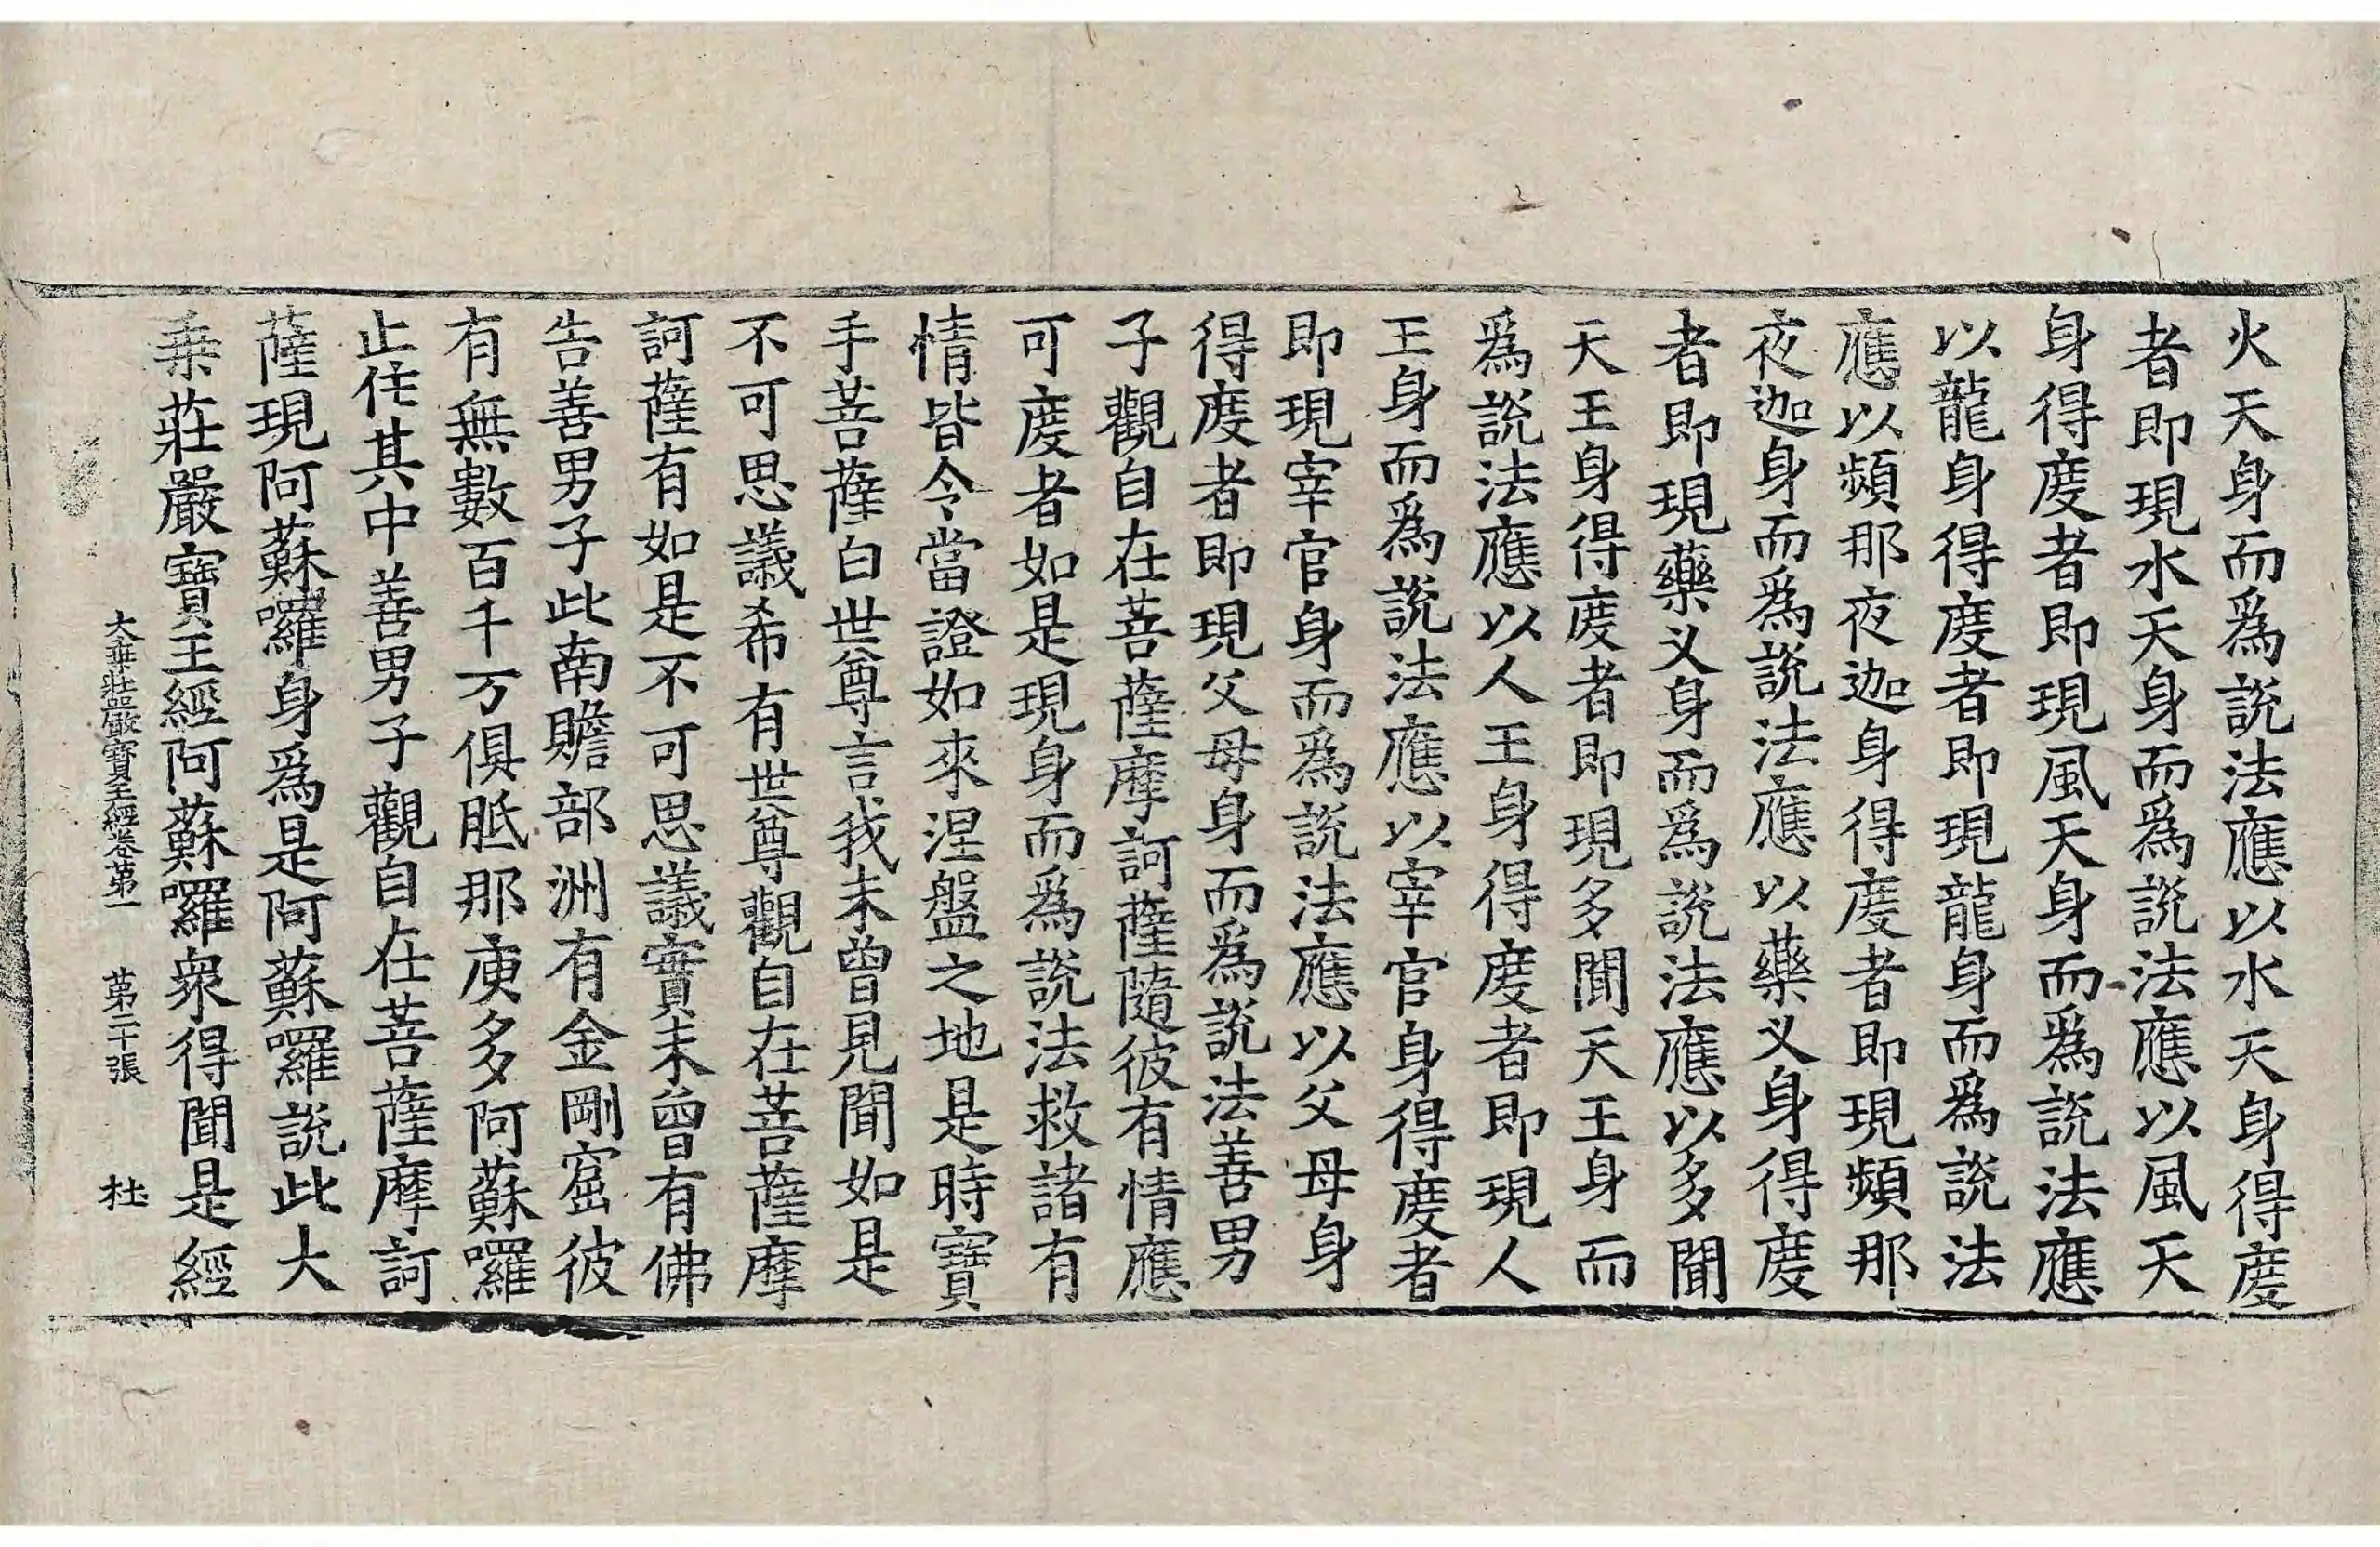 火天身而爲說法應以水天身得度
者即現水天身而爲說法應以風天
身得度者即現風天身而爲說法應
以龍身得度者即現龍身而爲說法
應以頻那夜迦身得度者即現頻那
夜迦身而爲說法應以藥叉身得度
者即現藥叉身而爲說法應以多聞
天王身得度者即現多聞天王身而
爲說法應以人王身得度者即現人
王身而爲說法應以宰官身得度者
即現宰官身而爲說法應以父母身
得度者即現父母身而爲說法善男
子觀自在菩薩摩訶薩隨彼有情應
可度者如是現身而爲說法救諸有
情皆令當證如來涅盤之地是時寶
手菩薩白世尊言我未曾見聞如是
不可思議希有世尊觀自在菩薩摩
訶薩有如是不可思議實未曾有佛
告善男子此南贍部洲有金剛窟彼
有無數百千万俱胝那庾多阿蘇囉
止住其中善男子觀自在菩薩摩訶
薩現阿蘇囉身爲是阿蘇囉說此大
乗莊嚴寶王經阿蘇囉衆得聞是經
大乗莊嚴寶王經卷第一 第二十張 杜